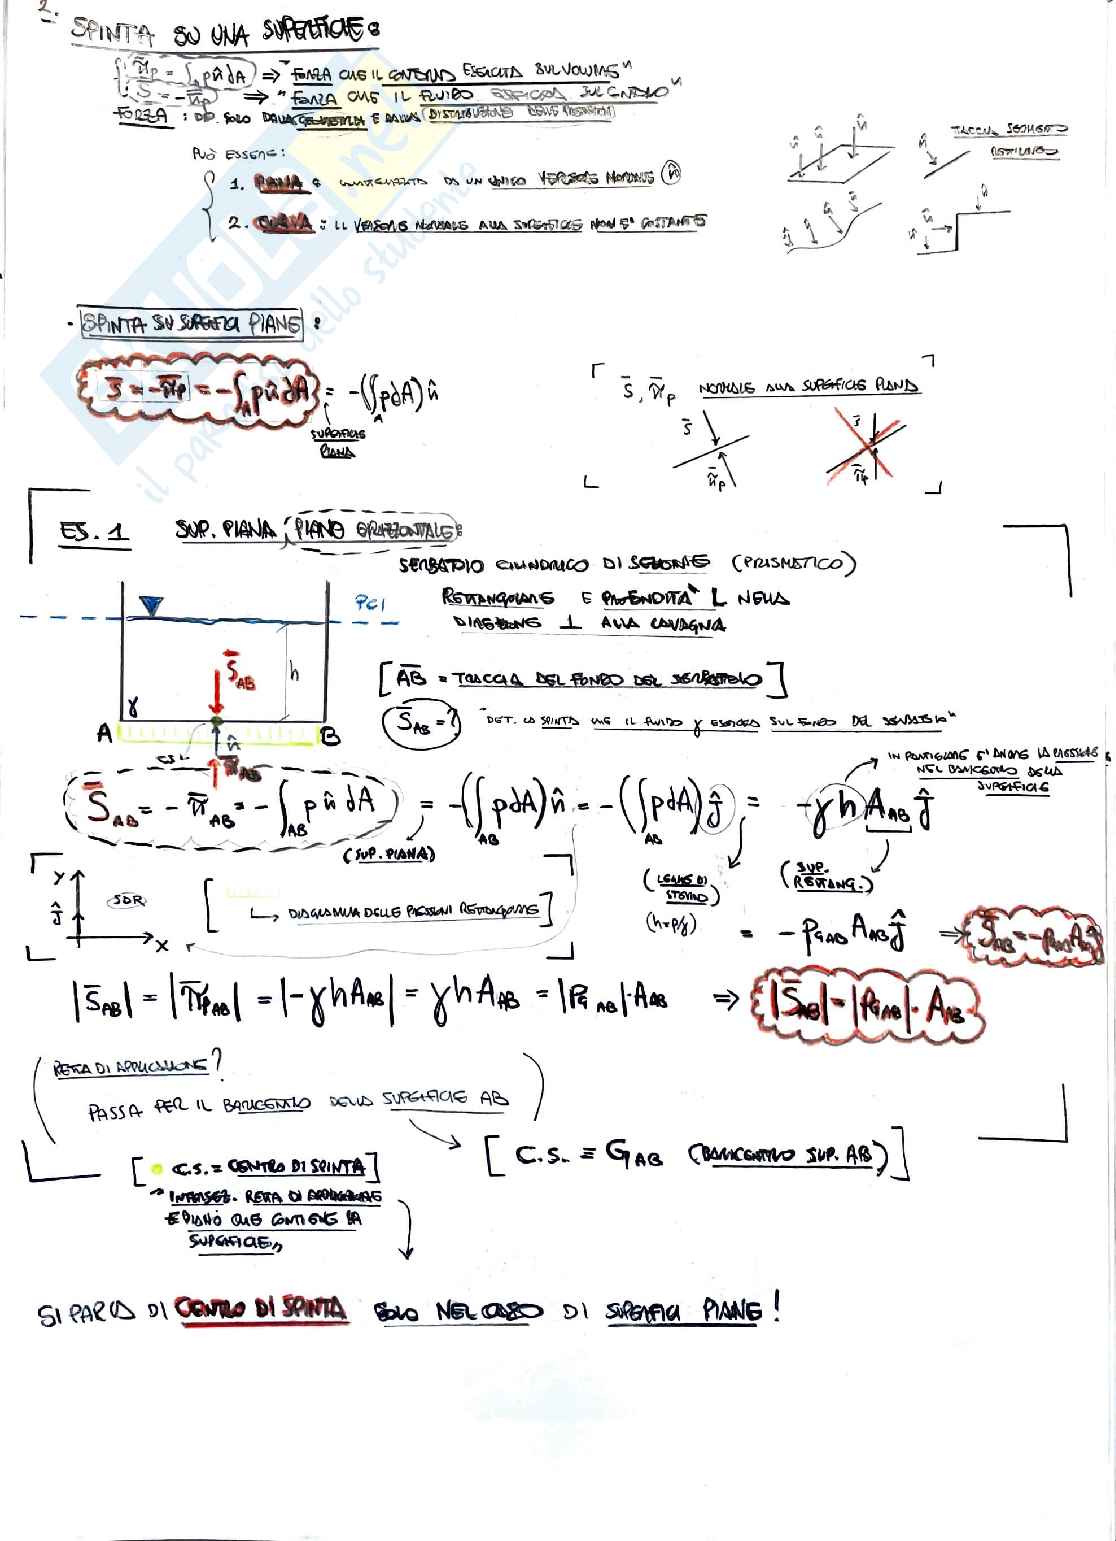 2.
SPINTA SU UNA SUPERFICIE:
π̄p = ∫A p n̂ dA ⇒ "FORZA CHE IL CONTORNO ESERCITA SUL VOLUME"
S̄ = -π̄p ⇒ "FORZA CHE IL FLUIDO ESERCITA SUL CONTORNO"
FORZA: DIP. SOLO DALLA GEOMETRIA E DALLA DISTRIBUZIONE DELLE PRESSIONI
PUÒ ESSERE:
1. PIANA: CONTRADDISTINTA DA UN UNICO VERSORE NORMALE n̂
2. CURVA: IL VERSORE NORMALE ALLA SUPERFICIE NON E' COSTANTE
TRACCIA SEGMENTO
RETTILINEO
n̂ n̂ n̂ n̂
n̂ n̂ n̂ n̂ n̂ n̂ n̂
• SPINTA SU SUPERFICI PIANE:
S̄ = -π̄p = -∫A p n̂ dA = -(∫A p dA) n̂
SUPERFICIE
PIANA
S̄, π̄p NORMALE ALLA SUPERFICIE PIANA
S̄ S̄
π̄p π̄p
ES. 1 SUP. PIANA, PIANO ORIZZONTALE:
SERBATOIO CILINDRICO DI SEZIONE (PRISMATICO)
RETTANGOLARE E PROFONDITA' L NELLA
DIREZIONE ⊥ ALLA LAVAGNA
PCI
S̄AB h
γ
A n̂ B
π̄AB
[AB = TRACCIA DEL FONDO DEL SERBATOIO]
S̄AB = ? "DET. LA SPINTA CHE IL FLUIDO γ ESERCITA SUL FONDO DEL SERBATOIO"
IN PARTICOLARE E' ANCHE LA PRESSIONE
NEL BARICENTRO DELLA
SUPERFICIE
S̄AB = -π̄AB = -∫AB p n̂ dA = -(∫AB p dA) n̂ = -(∫AB p dA) ĵ = -γ h AAB ĵ
(SUP. PIANA)
(LEGGE DI
STEVINO)
(h=p/γ)
(SUP.
RETTANG.)
Y
ĵ SDR
X
[↳ DIAGRAMMA DELLE PRESSIONI RETTANGOLARE]
= -pGAB AAB ĵ ⇒ S̄AB = -pGAB AAB ĵ
|S̄AB| = |π̄pAB| = |-γ h AAB| = γ h AAB = |pG AB|·AAB ⇒ |S̄AB| = |pGAB|·AAB
RETTA DI APPLICAZIONE?
PASSA PER IL BARICENTRO DELLA SUPERFICIE AB
[C.S. ≡ GAB (BARICENTRO SUP. AB)]
[• C.S. = CENTRO DI SPINTA]
"INTERSEZ. RETTA DI APPLICAZIONE
E PIANO CHE CONTIENE LA
SUPERFICIE"
SI PARLA DI CENTRO DI SPINTA SOLO NEL CASO DI SUPERFICI PIANE!